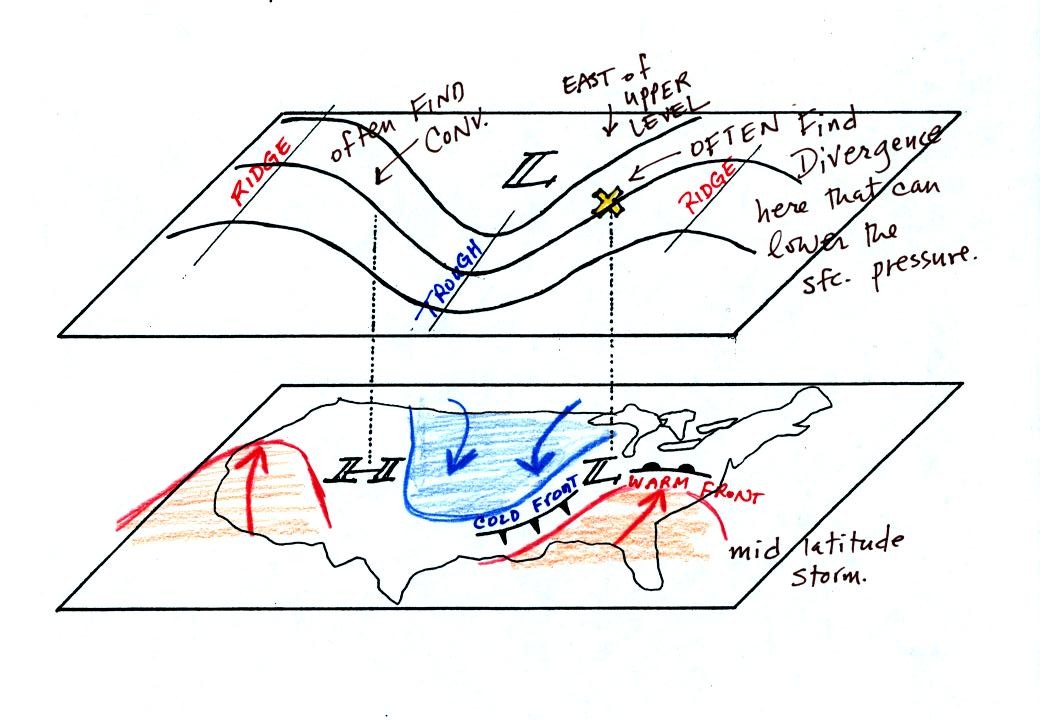 often FIND
CONV.
EAST of
UPPER
LEVEL
L
OFTEN Find
Divergence
here that can
lower the
sfc. pressure.
RIDGE
TROUGH
RIDGE
H
L
COLD FRONT
WARM FRONT
mid latitude
storm.